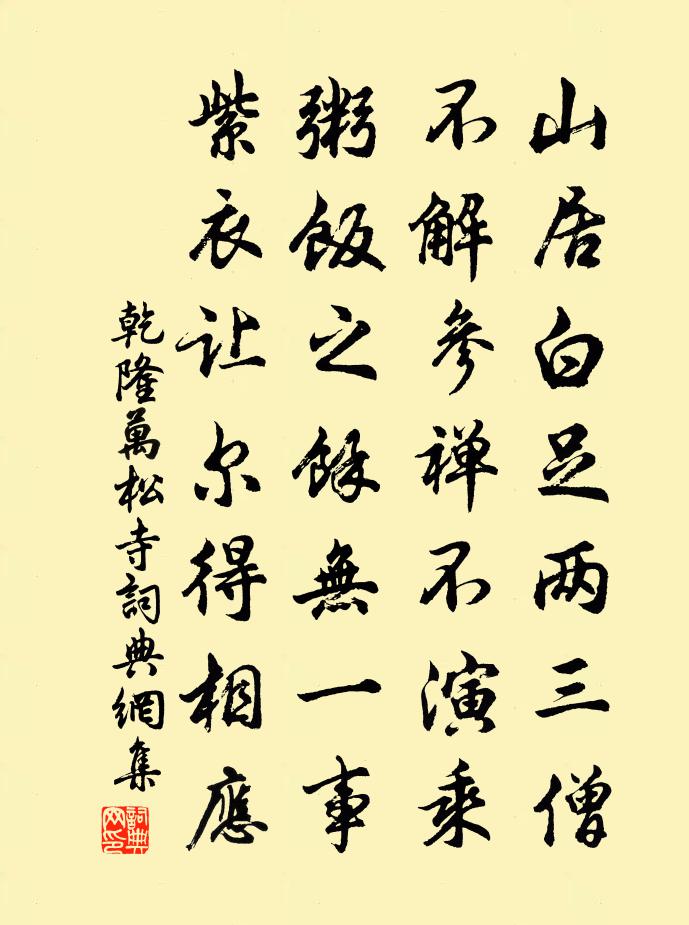 山居白足两三僧
不解参禅不演乘
粥飯之餘無一事
紫衣让尔得相應
乾隆萬松寺詞典網集
詞典网印